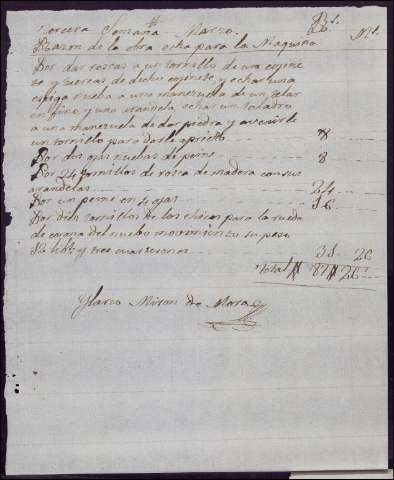 Tercera Semana Marzo. Rs. Ms.
Razon de la obra echa para la Maquina
Por dar roscas a un tornillo de un cojine
te y tuercas de dicho cojinete y echar una
espiga nueba a una manezuela de un telar
en fino, y una arandela echar un taladro
a una manezuela de dar piedra y avenirle
un tornillo para darle aprieto 8
Por dos ojas nuebas de peine 8
Por 24 tornillos de rosca de madera con sus
arandelas 24
Por un peine en 4 ojas 16
Por diez tornillos de los chicos para la rueda
de corona del nuebo movimiento su peso
y tres cuarterones 31 26
Total 87 26
Marco Miron de Mora